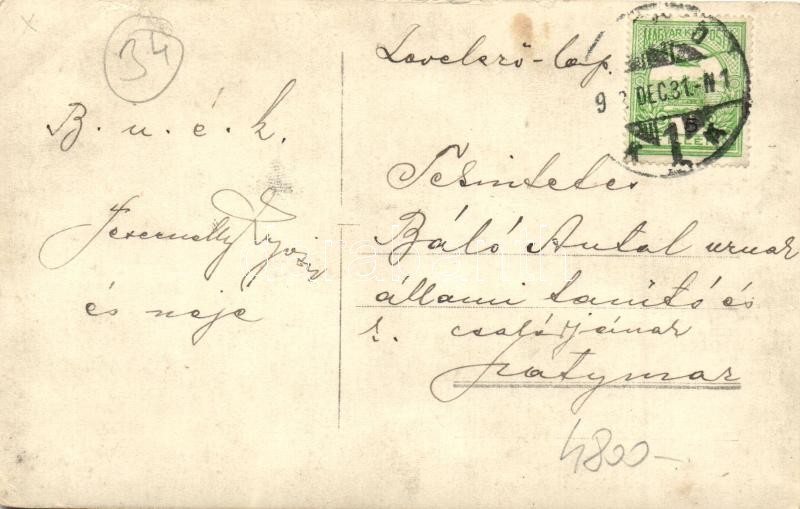 34
B. u. é. k.
és neje
Levelező-lap.
MAGYAR KIR. POSTA
DEC.31.-N1
Tekintetes
Báló Antal urnak
állami tanító és
k. családjának
Gatymar
4800-